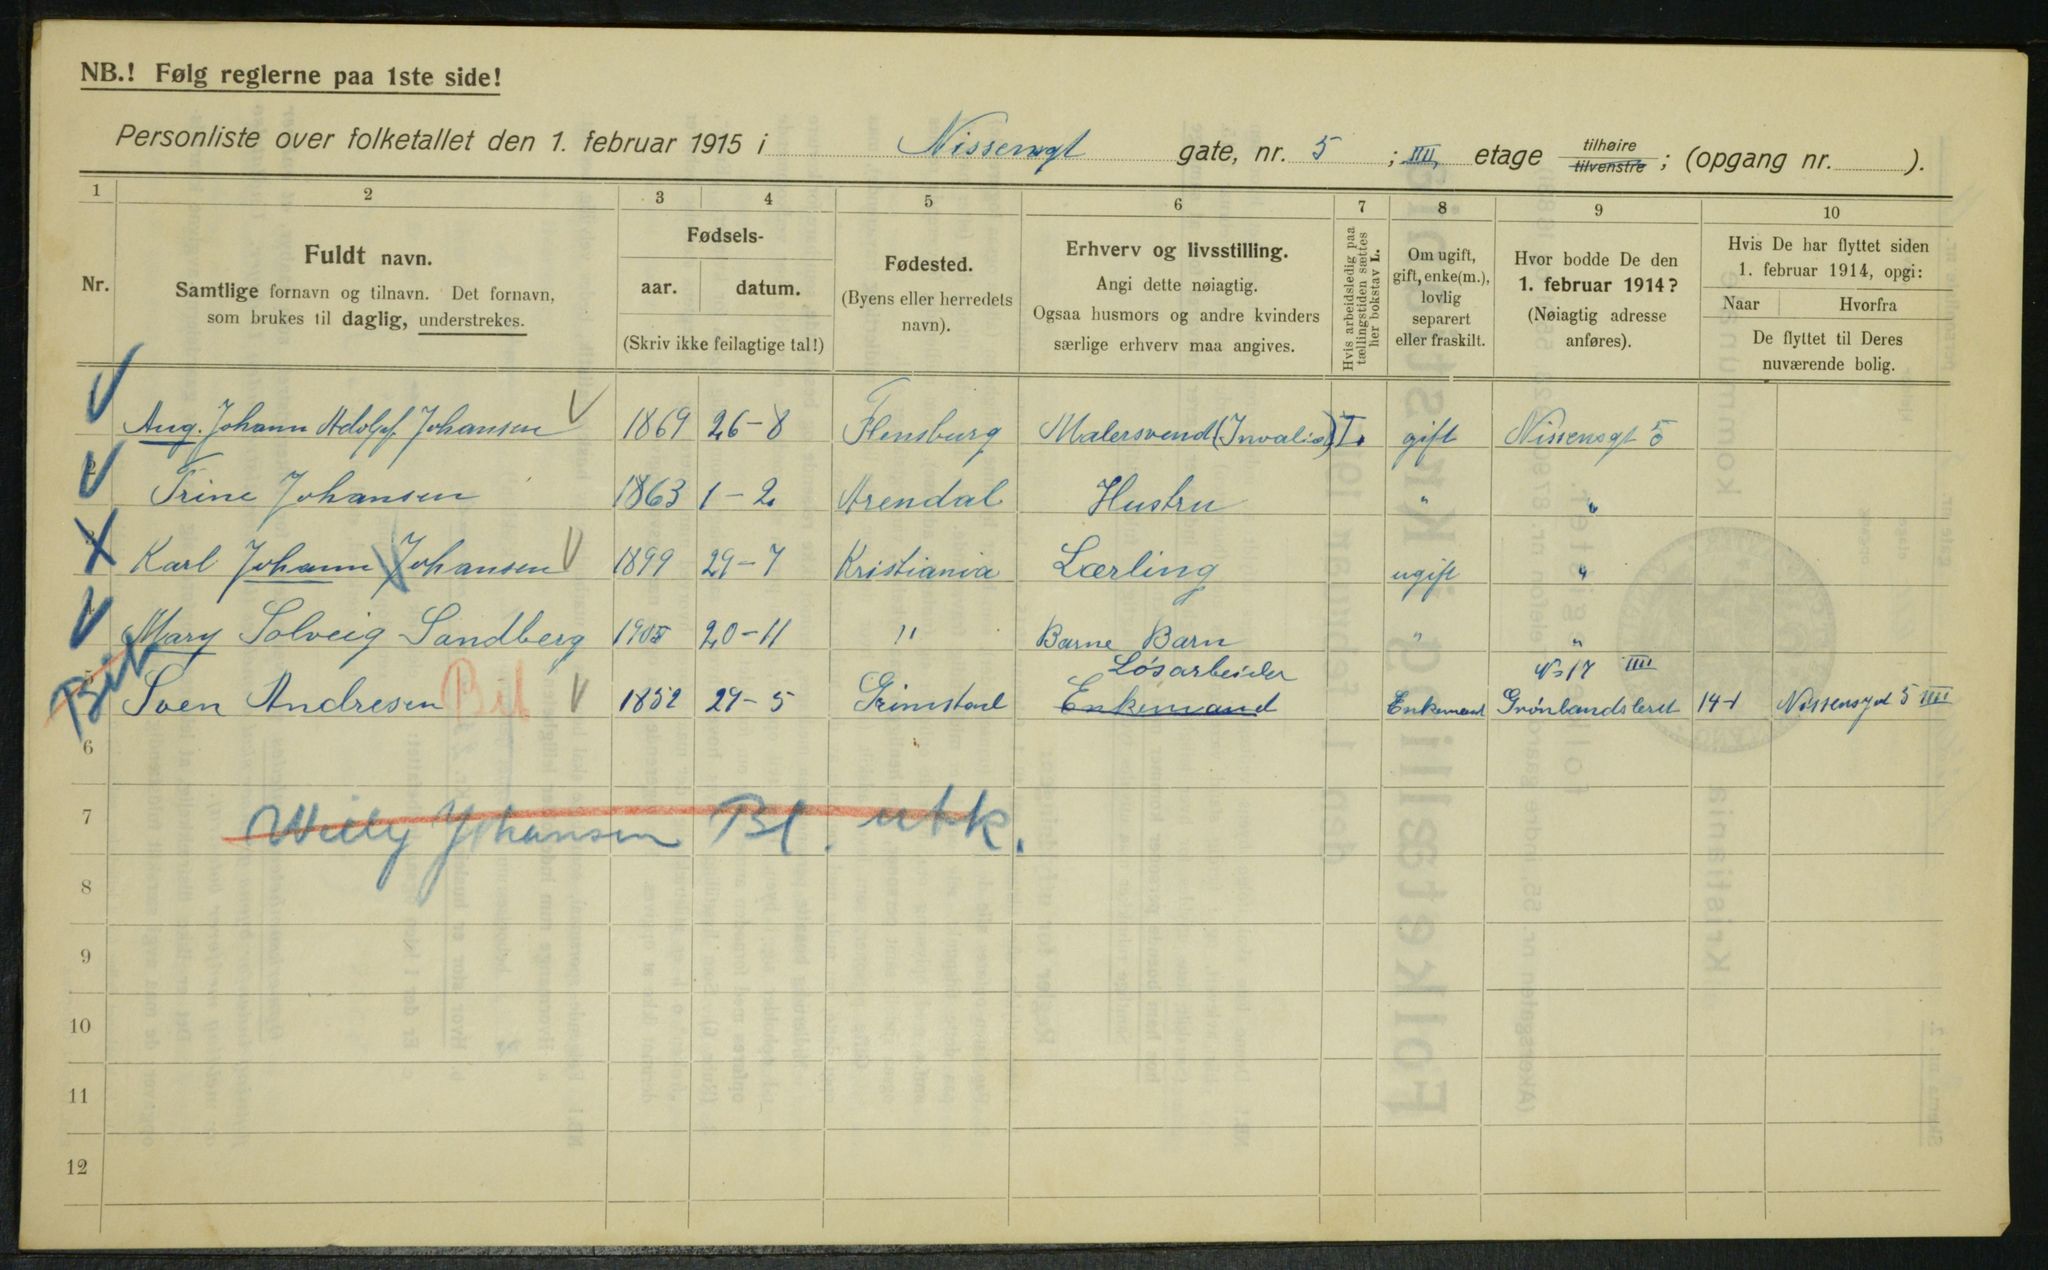 NB.! Følg reglerne paa 1ste side!
Personliste over folketallet den 1. februar 1915 i Nissensgt gate, nr. 5 ; IIII, etage tilhøire tilvenstre ; (opgang nr. ).
1 2 3 4 5 6 7 8 9 10
Nr.
Fuldt navn.
Samtlige fornavn og tilnavn. Det fornavn,
som brukes til daglig, understrekes.
Fødsels-
aar. datum.
(Skriv ikke feilagtige tal!)
Fødested.
(Byens eller herredets
navn).
Erhverv og livsstilling.
Angi dette nøiagtig.
Ogsaa husmors og andre kvinders
særlige erhverv maa angives.
Hvis arbeidsledig paa
tællingstiden sættes
her bokstav L.
Om ugift,
gift, enke(m.),
lovlig
separert
eller fraskilt.
Hvor bodde De den
1. februar 1914?
(Nøiagtig adresse
anføres).
Hvis De har flyttet siden
1. februar 1914, opgi:
Naar Hvorfra
De flyttet til Deres
nuværende bolig.
Aug. Johann Adolf Johansen 1869 26-8 Flensburg Malersvend (Invalid) gift Nissensgt 5
2 Trine Johansen 1863 1-2 Arendal Hustru " "
3 Karl Johann Johansen 1899 29-7 Kristiania Lærling ugift "
4 Mary Solveig Sandberg 1905 20-11 " Barne Barn " "
Løsarbeider No 17 IIII
5 Bil Sven Andresen Bil 1852 29-5 Grimstad Enkemand Enkemand Grønlandsleret 14-1 Nissensgt 5 IIII
6
7 Willy Johansen Bl. utk.
8
9
10
11
12